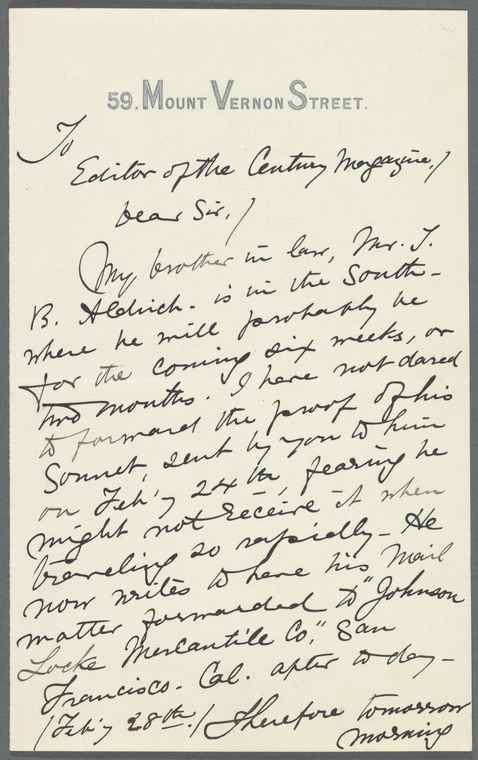 59, MOUNT VERNON STREET.
To
Editor of the Century Magazine,/
Dear Sir,/
My brother in law, Mr. T.
B. Aldrich - is in the South -
where he will probably be
for the coming six weeks, or
two months. I have not dared
to forward the proof of his
Sonnet, sent by you to him
on Feb'y 24th, fearing he
might not receive it when
traveling so rapidly - He
now writes to have his mail
matter forwarded to "Johnson
Locke Mercantile Co," San
Francisco. Cal. after to day -
/Feb'y 28th./ Therefore tomorrow
morning